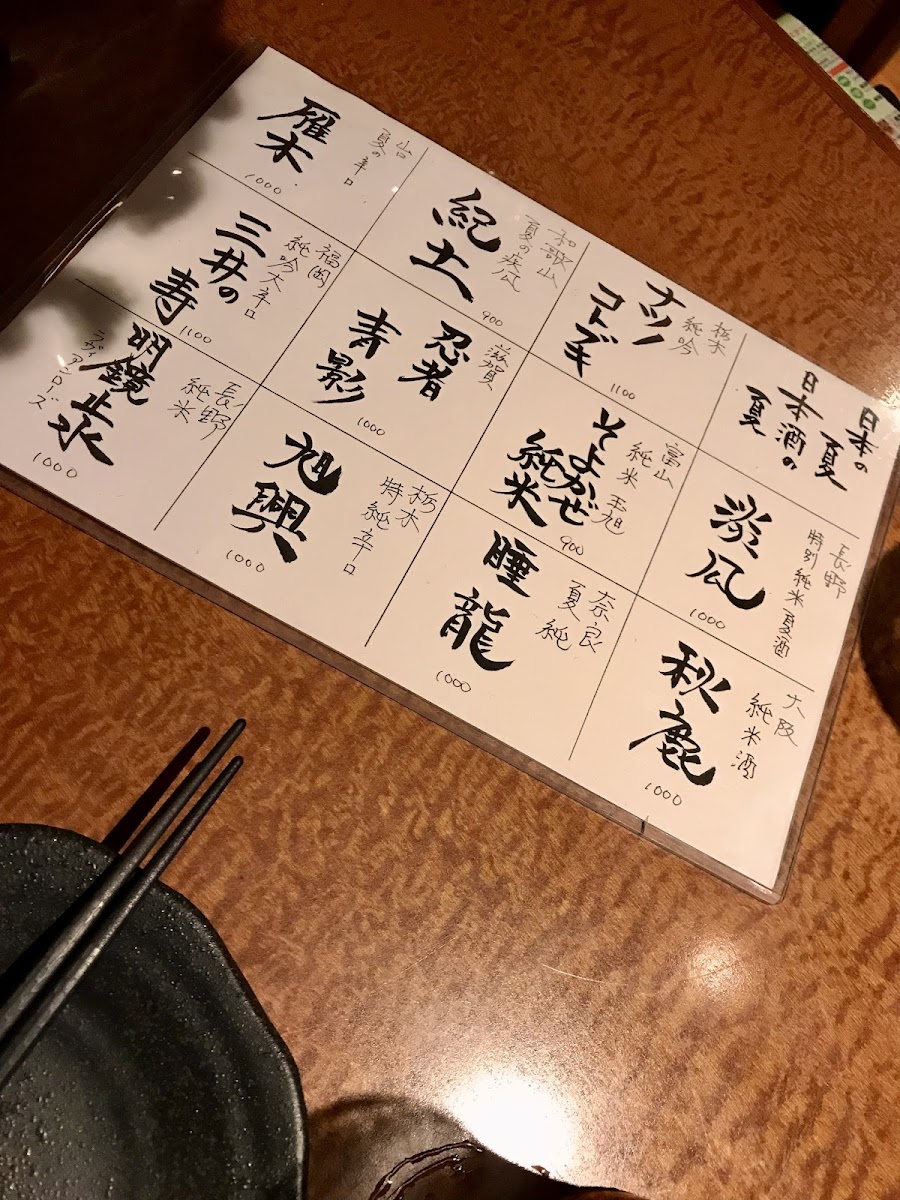 日本の
夏
日本酒の
夏
長野
特別純米夏酒
涼風
1000
大阪
純米酒
秋鹿
1000
栃木
純吟
ナツノ
コトブキ
1100
富山
純米
そよかぜ
純米
900
奈良
夏純
睡龍
1000
和歌山
夏の疾風
紀土
900
滋賀
忍者
青影
1000
栃木
特純辛口
旭興
1000
山口
夏の辛口
雁木
1000
福岡
純吟大辛口
三井の
寿
1100
長野
純米
明鏡止水
ラヴィアンローズ
1000